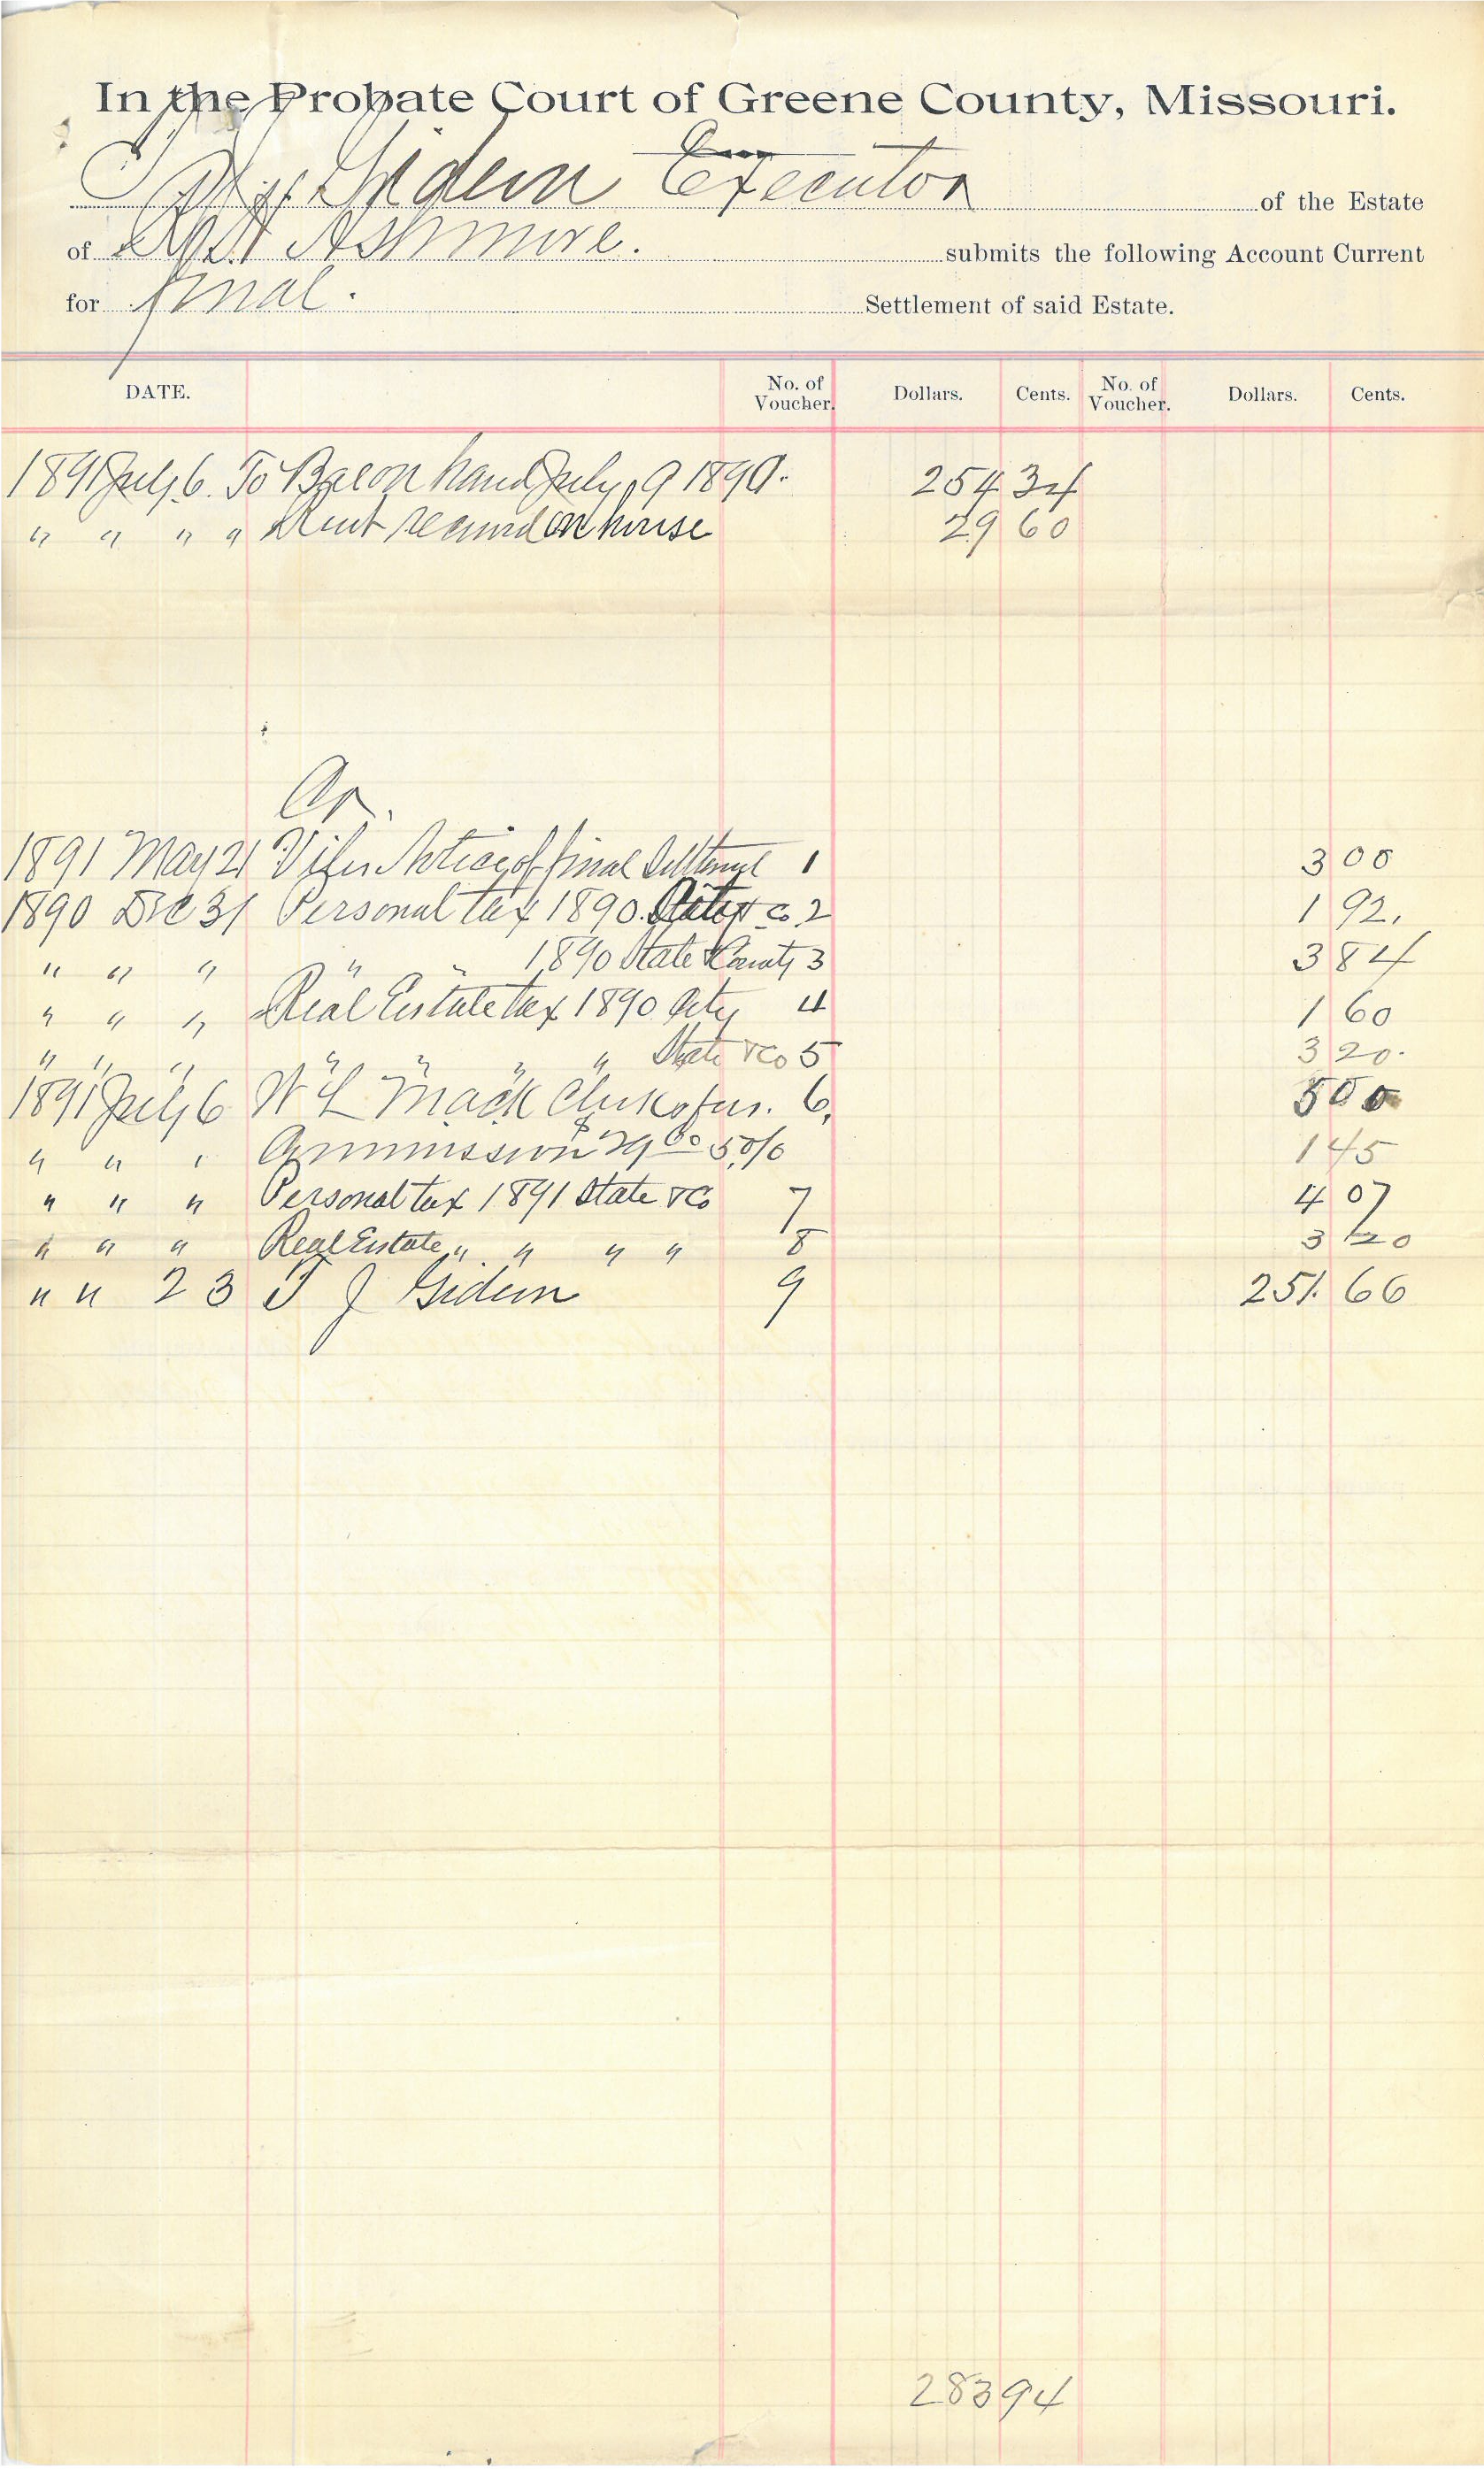 In the Probate Court of Greene County, Missouri.
T. J. Gideon Executor of the Estate
of Ashmore. submits the following Account Current
for final. Settlement of said Estate.
DATE. No. of Voucher. Dollars. Cents. No. of Voucher. Dollars. Cents.
1891 July 6. To Bal on hand July 9 1890. 254 34
" " " " Rent received on house 29 60
Cr.
1891 May 21 Notice of final Settlement 1 3 00
1890 Dec 31 Personal tax 1890. & Co 2 1 92.
" " " " " 1890 State & County 3 3 84
" " " Real Estate tax 1890 City 4 1 60
" " " " " " " State & Co 5 3 20.
1891 July 6 W L Mack Clerks fees. 6. 5 00
" " " Commission $29 60 5% 1 45
" " " Personal tax 1891 State & Co 7 4 07
" " " Real Estate " " " " 8 3 20
" " 23 T J Gideon 9 251. 66
283 94